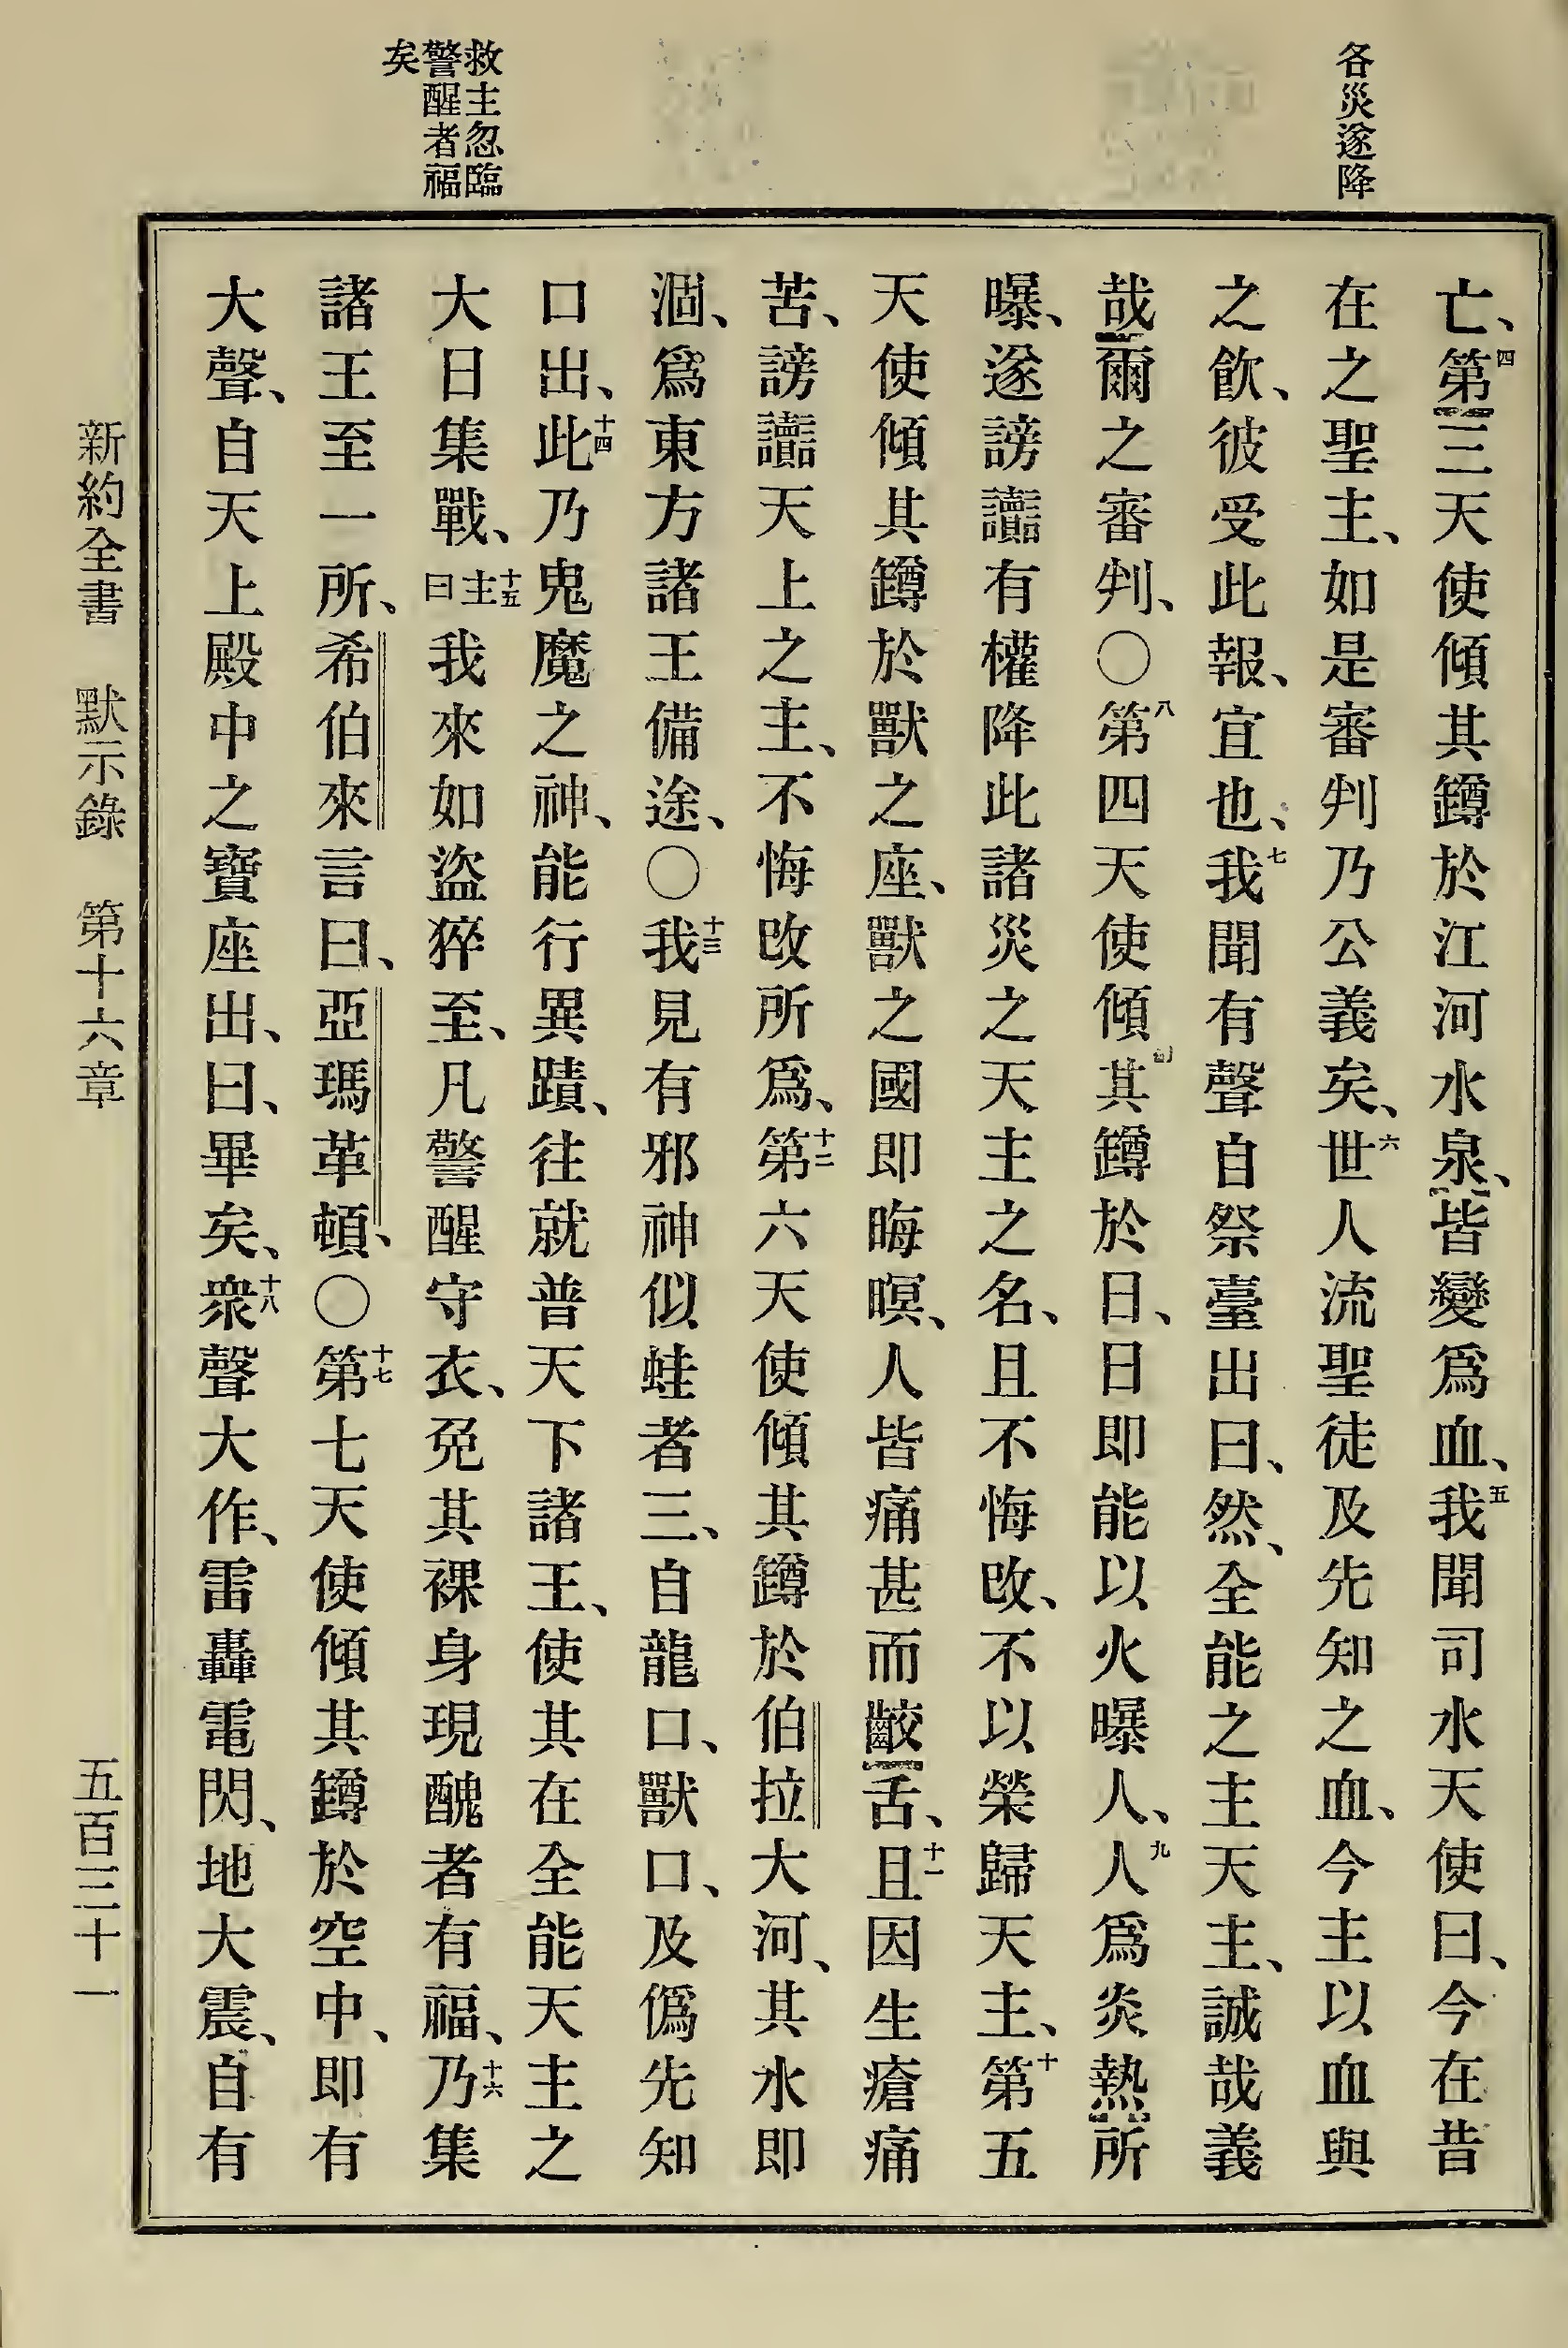 各災遂降
救主忽臨
警醒者福
矣
亡、四第三天使傾其鐏於江河水泉、皆變爲血、五我聞司水天使曰、今在昔
在之聖主、如是審判乃公義矣、六世人流聖徒及先知之血、今主以血與
之飲、彼受此報、宜也、七我聞有聲自祭臺出曰、然、全能之主天主、誠哉義
哉爾之審判、〇八第四天使傾其鐏於日、日即能以火曝人、九人爲炎熱所
曝、遂謗讟有權降此諸災之天主之名、且不悔改、不以榮歸天主、十第五
天使傾其鐏於獸之座、獸之國即晦暝、人皆痛甚而齩舌、十一且因生瘡痛
苦、謗讟天上之主、不悔改所爲、十二第六天使傾其鐏於伯拉大河、其水即
涸、爲東方諸王備途、〇十三我見有邪神似蛙者三、自龍口、獸口、及僞先知
口出、十四此乃鬼魔之神、能行異蹟、往就普天下諸王、使其在全能天主之
大日集戰、十五主曰我來如盜猝至、凡警醒守衣、免其裸身現醜者有福、十六乃集
諸王至一所、希伯來言曰、亞瑪革頓、〇十七第七天使傾其鐏於空中、即有
大聲、自天上殿中之寶座出、曰、畢矣、十八衆聲大作、雷轟電閃、地大震、自有
新約全書　默示錄　第十六章　五百三十一